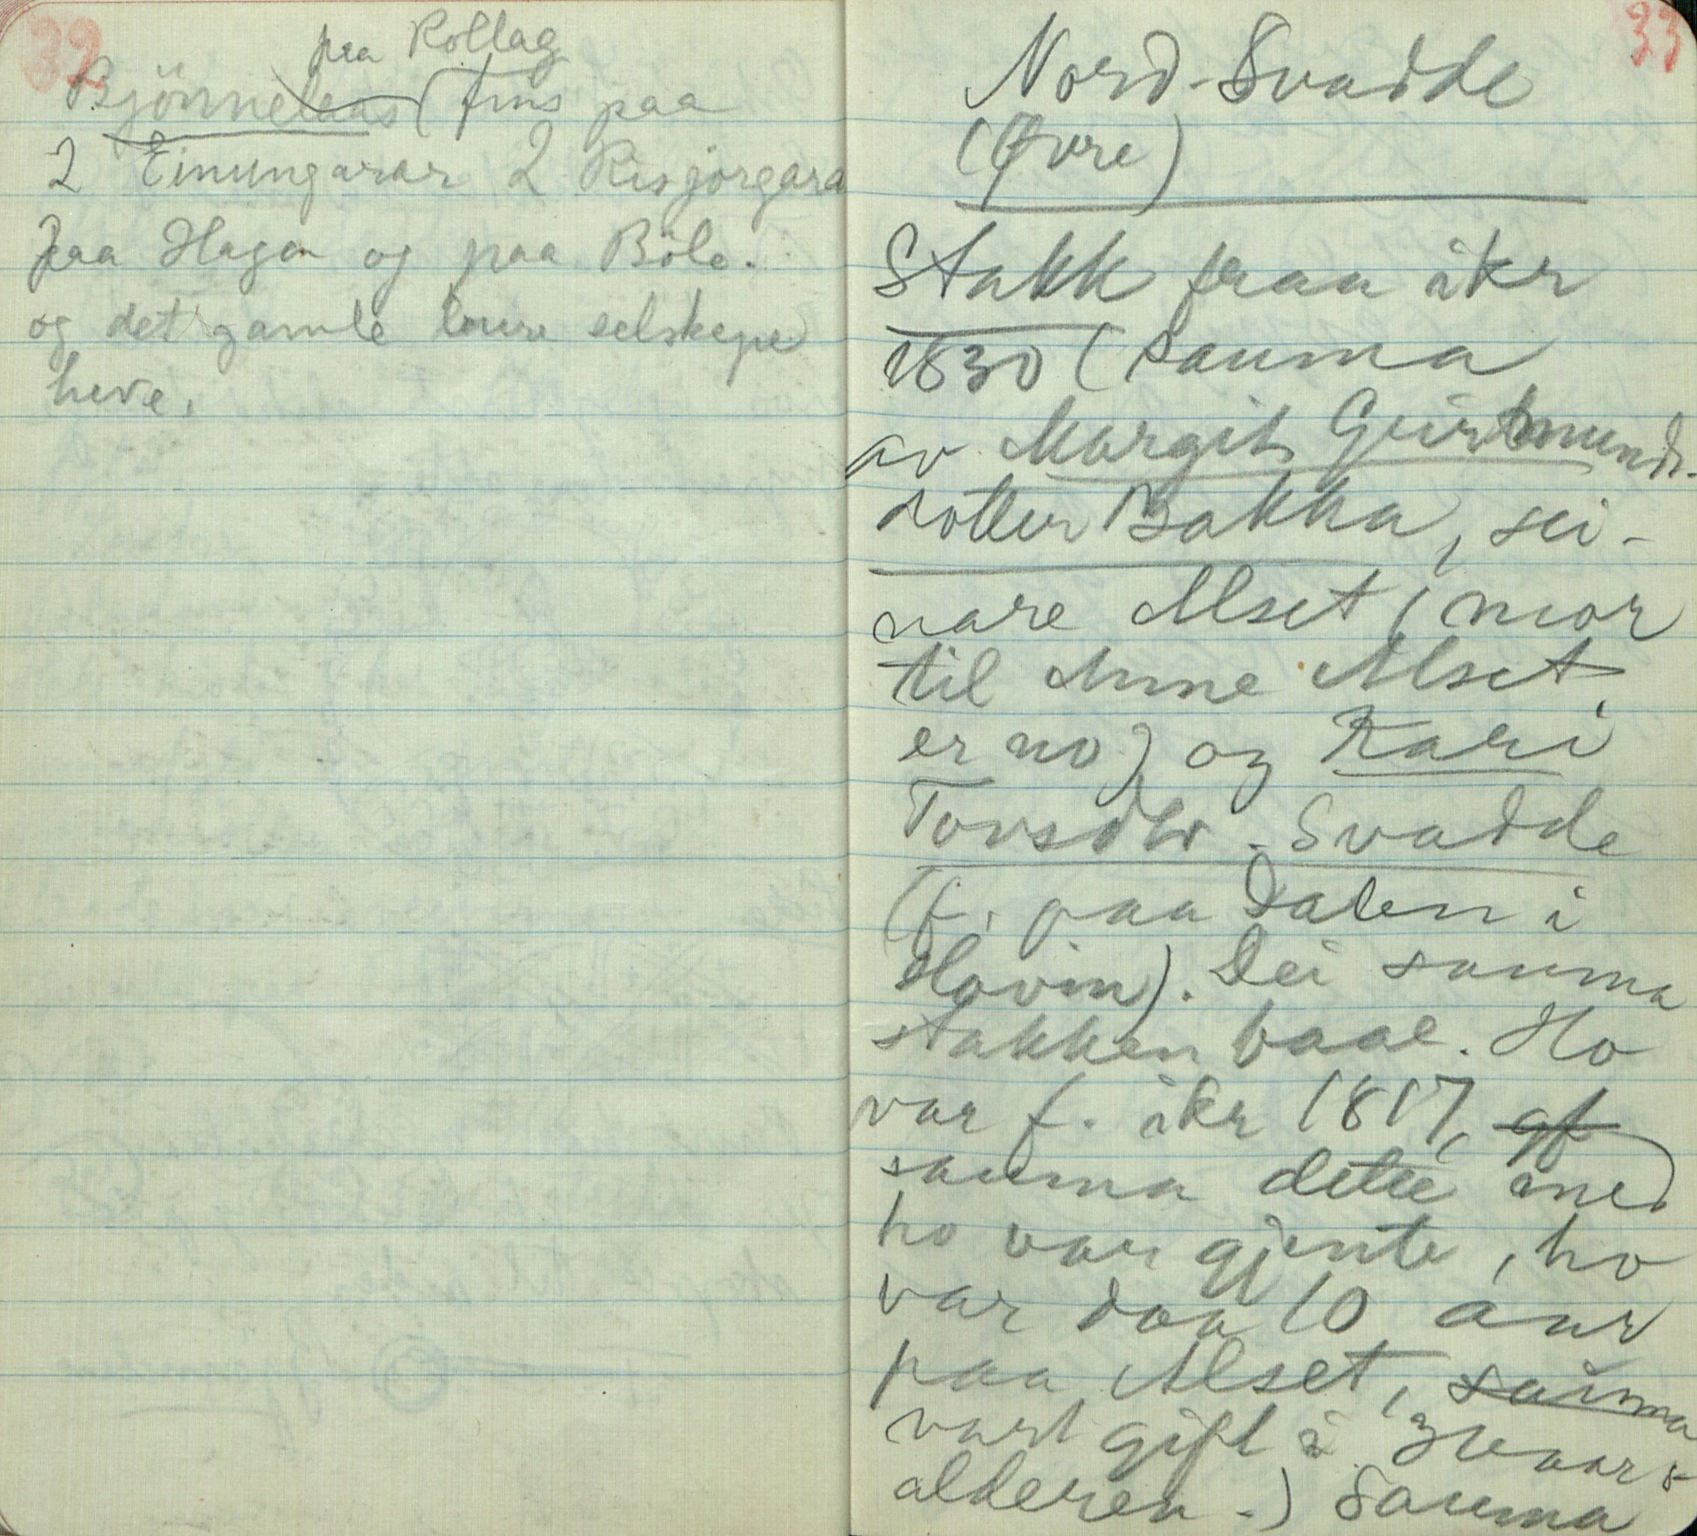 32
fra Rollag
Bjönnelaas (fins paa
2 Einungarar 2 Risjorgara
paa Hagan og paa Böle.
og det gamle selskape
heve.
33
Nord-Svadde
(Øvre)
Stakk fraa ikr
1830 (sauma
av Margit Geirmunds-
dotter Bakka, sei-
nare Alset (mor
til Anne Alset,
er no) og Kari
Torsdtr. Svadde
(f. paa Dalen i
Hovin). Dei sauma
stakken baae. Ho
var f. ikr 1817, gf
sauma dette med
ho var gjente, ho
var daa 10 aar
paa Alset, sauma
vart gift i aars
alderen.) Sauma